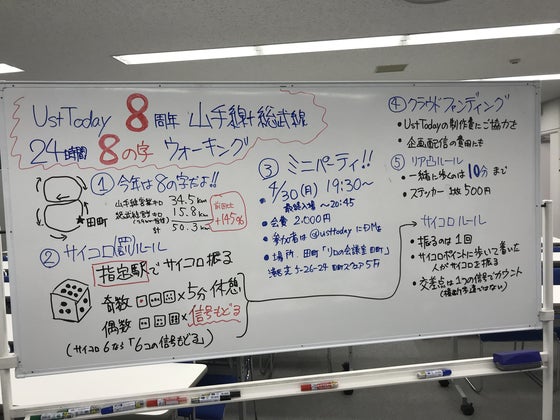 UstToday 8周年 山手線+総武線
24時間 8の字 ウォーキング
① 今年は8の字だよ!!
山手線営業キロ 34.5km
総武線営業キロ 15.8km
計 50.3km
前回比
+145%
★田町
② サイコロ罰ルール
指定駅でサイコロ振る
奇数 ×5分休憩
偶数 ×信号もどる
(サイコロ6なら「6コの信号もどる」)
③ ミニパーティ!!
4/30(月) 19:30~
最終入場 ~20:45
・会費 2,000円
・参加者は@usttodayにDMを
・場所 田町「リロの会議室 田町」
港区芝5-26-24 田町スクエア5F
④ クラウドファンディング
・UstTodayの制作費にご協力を
・企画配信の費用にも
⑤ リアルルール
・一緒に歩くのは10分まで
・ステッカー 1枚500円
サイコロルール
・振るのは1回
・サイコロポイントに歩いて着いた
人がサイコロを振る
・交差点は1つの信号でカウント